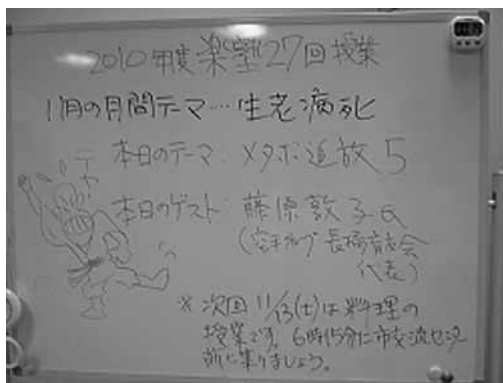 2010年度 楽塾27回授業
11月の月間テーマ…生老病死
本日のテーマ メタボ追放5
本日のゲスト 藤原敦子氏
長橋育成会
代表)
※次回11/13(土)は料理の
授業です。6時15分に市交流センター
前に集りましょう。